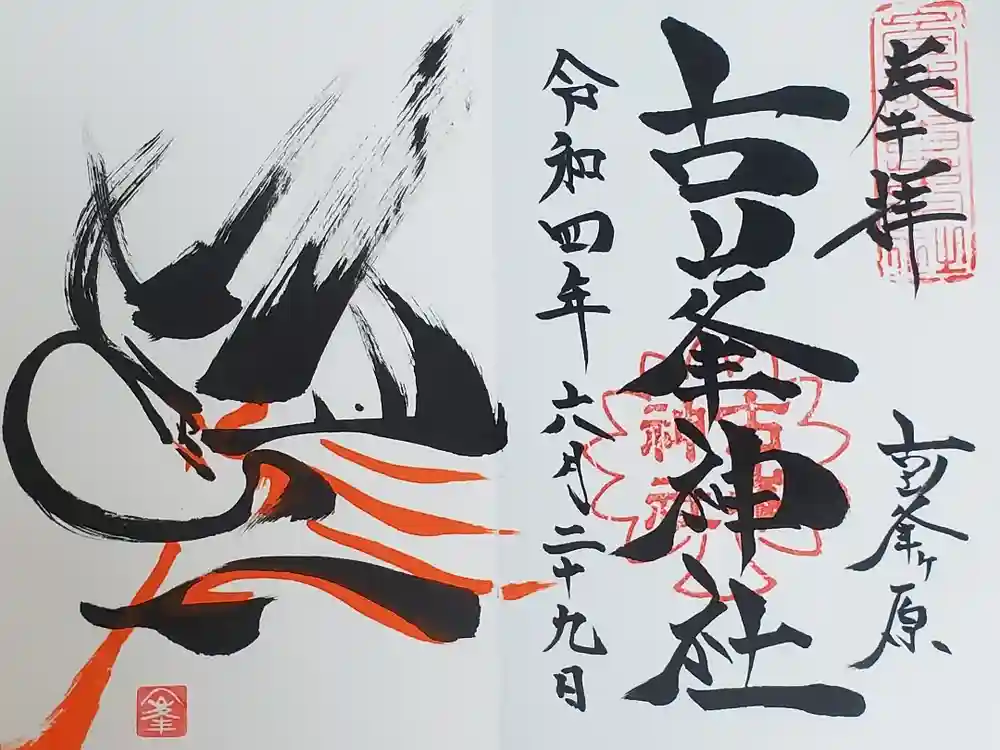 奉拝
古峯ヶ原
古峯神社
令和四年六月二十九日
古峯
神社
峯